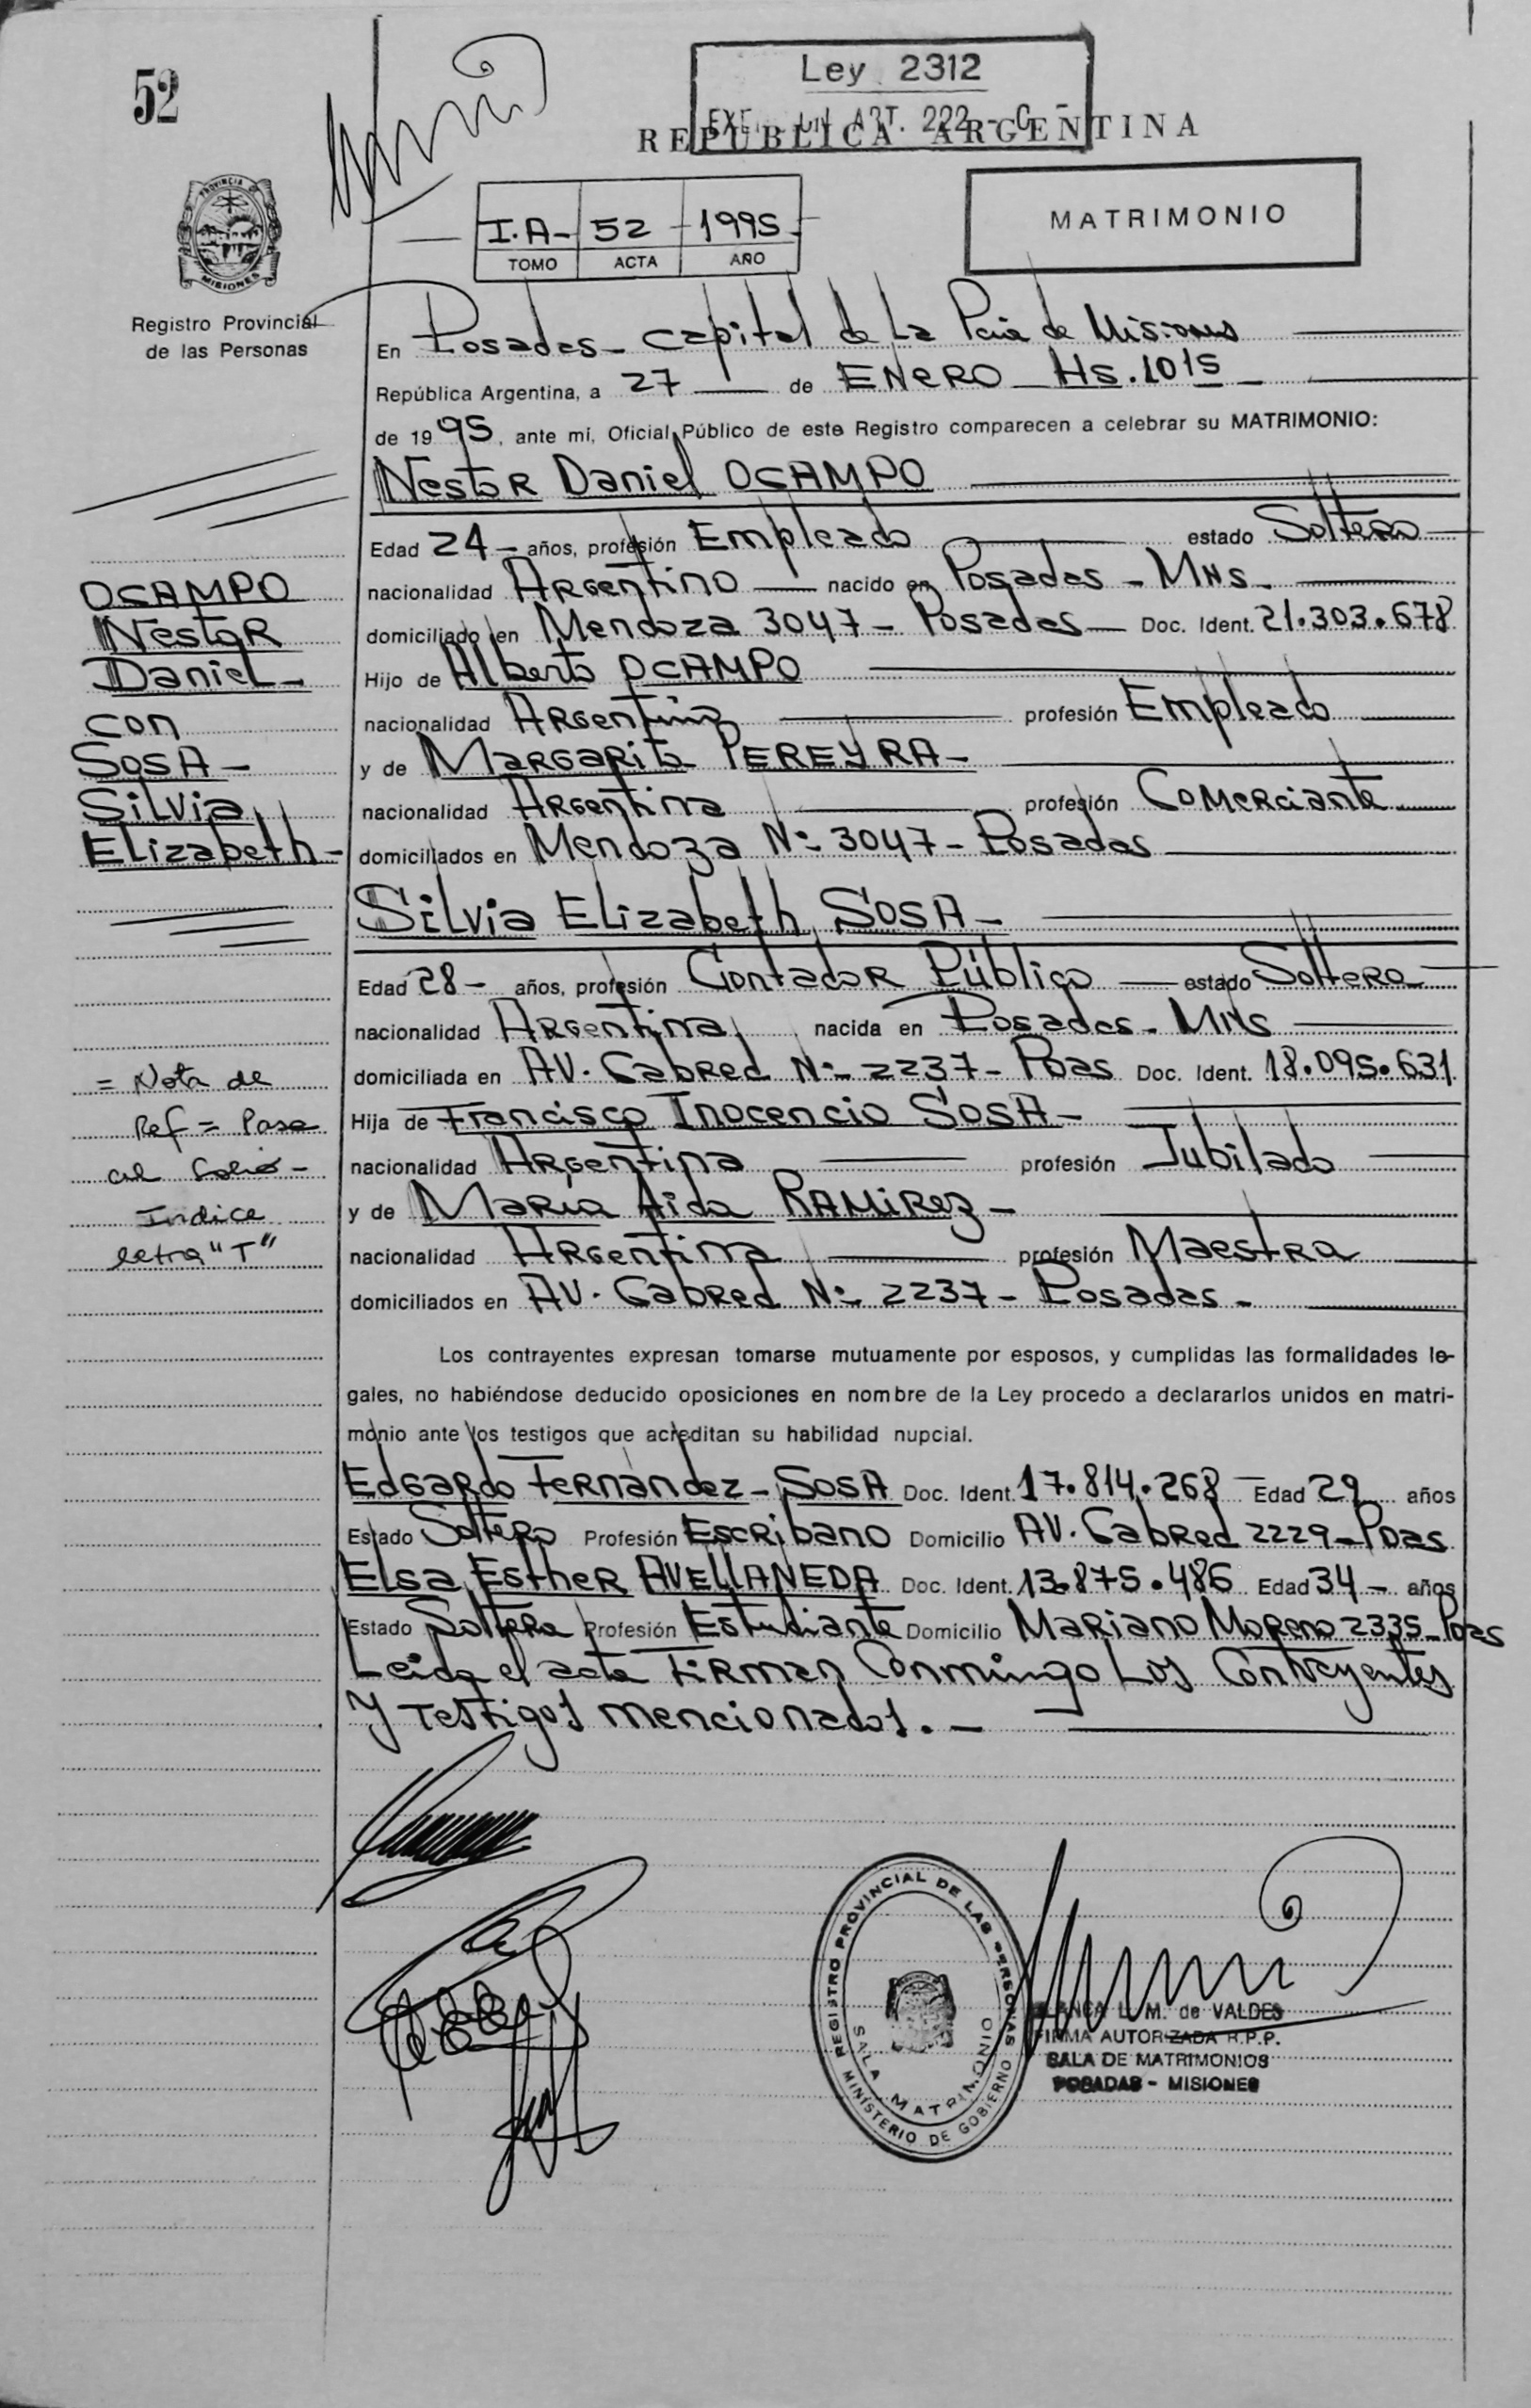 52
Ley 2312
ART. 222
REPUBLICA ARGENTINA
PROVINCIA DE
MISIONES
Registro Provincial
de las Personas
I.A- 52 - 1995-
TOMO ACTA AÑO
MATRIMONIO
En Posadas - Capital de La Pcia de Misiones
República Argentina, a 27 de ENERO Hs. 1015
de 1995, ante mí, Oficial Público de este Registro comparecen a celebrar su MATRIMONIO:
Nestor Daniel OCAMPO
Edad 24 - años, profesión Empleado estado Soltero
nacionalidad Argentino nacido en Posadas - MNS -
domiciliado en Mendoza 3047 - Posadas Doc. Ident. 21.303.678
Hijo de Alberto OCAMPO
nacionalidad Argentino profesión Empleado
y de MARGARITA PEREYRA -
nacionalidad Argentina profesión Comerciante
domiciliados en Mendoza Nº 3047 - Posadas
Silvia Elizabeth SOSA -
Edad 28 - años, profesión Contador Público estado Soltera
nacionalidad Argentina nacida en Posadas - MNS
domiciliada en AV. Cabred Nº 2237 - Pdas Doc. Ident. 18.095.631
Hija de Francisco Inocencio SOSA -
nacionalidad Argentina profesión Jubilado
y de María Aida RAMIREZ -
nacionalidad Argentina profesión Maestra
domiciliados en AV. Cabred Nº 2237 - Posadas -
OCAMPO
Nestor
Daniel -
con
SOSA -
Silvia
Elizabeth -
= Nota de
Ref = Pasa
al folio -
Indice
letra "T"
Los contrayentes expresan tomarse mutuamente por esposos, y cumplidas las formalidades le-
gales, no habiéndose deducido oposiciones en nombre de la Ley procedo a declararlos unidos en matri-
monio ante los testigos que acreditan su habilidad nupcial.
Edgardo Fernandez - SOSA Doc. Ident. 17.814.268 Edad 29 años
Estado Soltero Profesión Escribano Domicilio AV. Cabred 2229 - Pdas
Elsa Esther AVELLANEDA Doc. Ident. 13.875.486 Edad 34 - años
Estado Soltera Profesión Estudiante Domicilio Mariano Moreno 2335 - Pdas
Leida el acta Firman Conmingo Los Contrayentes
Y Testigos mencionados. -
REGISTRO PROVINCIAL DE LAS PERSONAS
SALA MATRIMONIO
MINISTERIO DE GOBIERNO
BLANCA L. M. de VALDES
FIRMA AUTORIZADA R.P.P.
SALA DE MATRIMONIOS
POSADAS - MISIONES